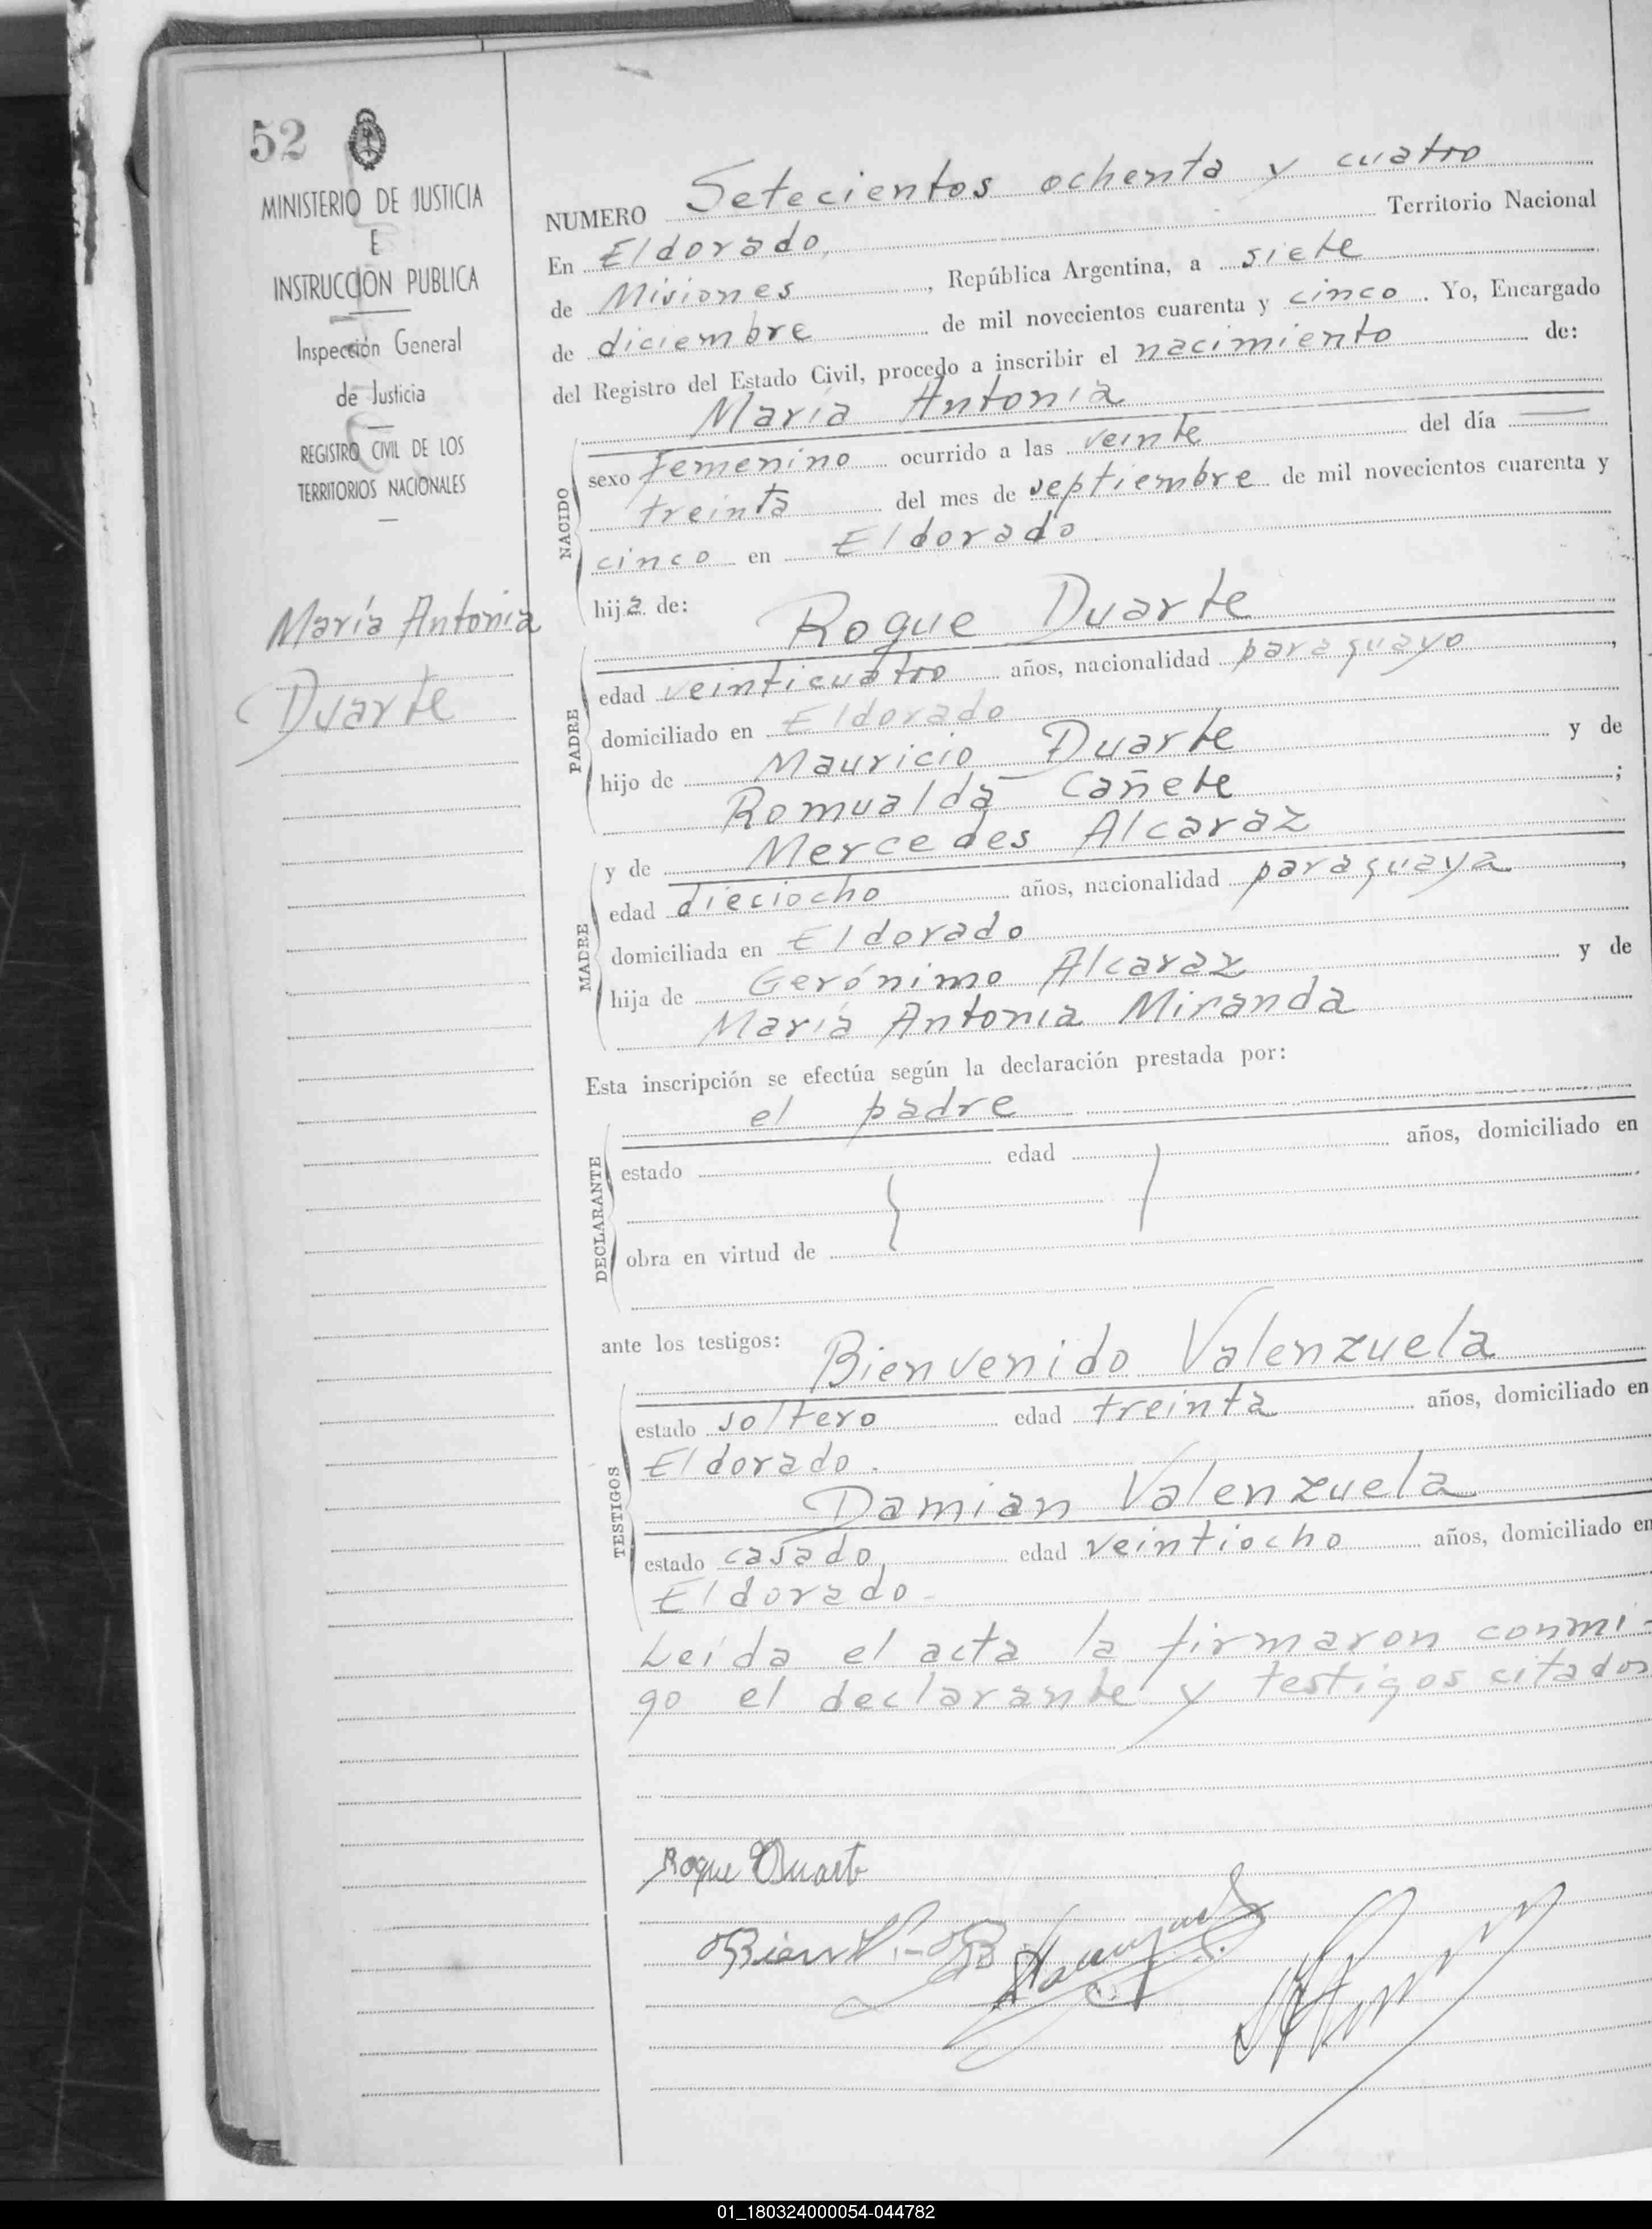 52
MINISTERIO DE JUSTICIA
E
INSTRUCCION PUBLICA
Inspección General
de Justicia
REGISTRO CIVIL DE LOS
TERRITORIOS NACIONALES
María Antonia
Duarte
NUMERO Setecientos ochenta y cuatro
En Eldorado, Territorio Nacional
de Misiones, República Argentina, a siete
de diciembre de mil novecientos cuarenta y cinco. Yo, Encargado
del Registro del Estado Civil, procedo a inscribir el nacimiento de:
María Antonia
NACIDO
sexo femenino ocurrido a las veinte del día
treinta del mes de septiembre de mil novecientos cuarenta y
cinco en Eldorado
hija de:
Roque Duarte
PADRE
edad veinticuatro años, nacionalidad paraguayo,
domiciliado en Eldorado
hijo de Mauricio Duarte y de
Romualda Cañete;
MADRE
y de Mercedes Alcaraz
edad dieciocho años, nacionalidad paraguaya,
domiciliada en Eldorado
hija de Gerónimo Alcaraz y de
María Antonia Miranda
Esta inscripción se efectúa según la declaración prestada por:
el padre
DECLARANTE
estado edad años, domiciliado en
obra en virtud de
ante los testigos:
Bienvenido Valenzuela
TESTIGOS
estado soltero edad treinta años, domiciliado en
Eldorado.
Damian Valenzuela
estado casado, edad veintiocho años, domiciliado en
Eldorado
Leída el acta la firmaron conmi-
go el declarante y testigos citados
Roque Duarte
01_180324000054-044782